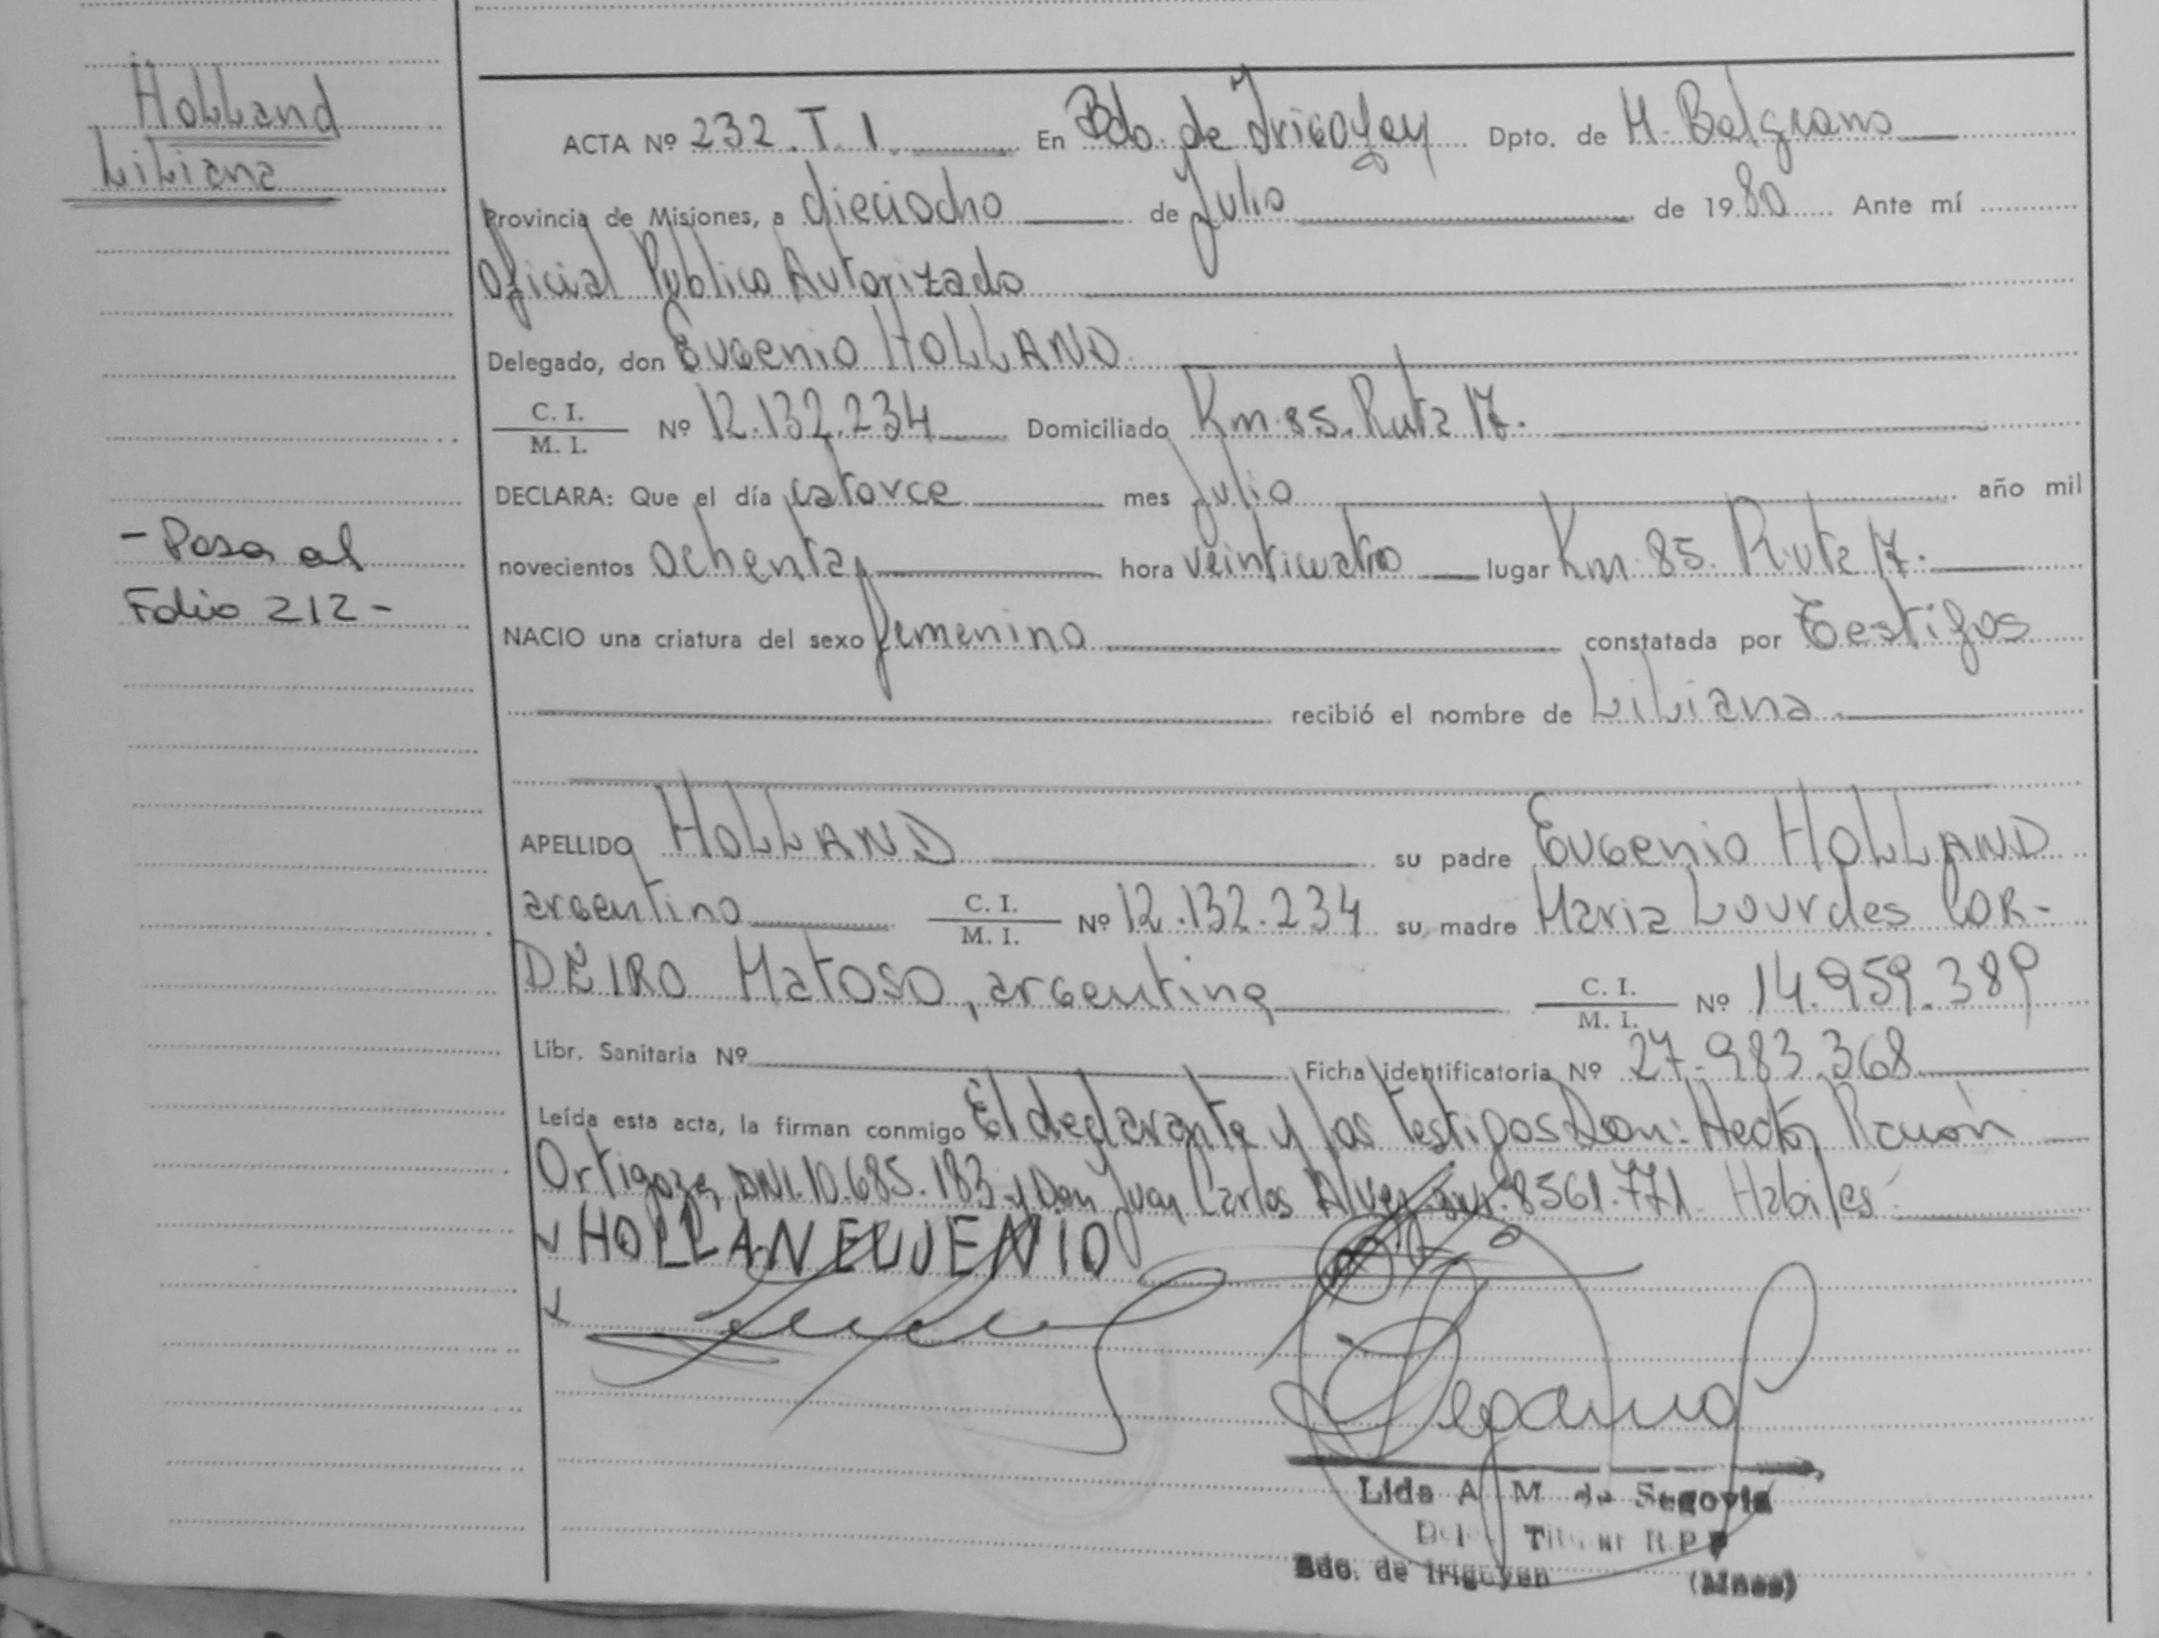 Holland
Liliana
ACTA Nº 232. T. I. En Bdo. de Irigoyen Dpto. de M. Belgrano
Provincia de Misiones, a dieciocho de Julio de 1980 Ante mí
Oficial Público Autorizado
Delegado, don Eugenio HOLLAND.
C. I. / M. I. Nº 12.132.234 Domiciliado Km 85. Ruta 17.
DECLARA: Que el día catorce mes Julio año mil
novecientos ochenta, hora veinticuatro lugar Km 85. Ruta 17.
NACIO una criatura del sexo femenino constatada por Testigos
recibió el nombre de Liliana
APELLIDO HOLLAND su padre Eugenio HOLLAND
argentino C. I. / M. I. Nº 12.132.234 su madre Maria Lourdes COR-
DEIRO Matoso, argentina C. I. / M. I. Nº 14.959.389
Libr. Sanitaria Nº Ficha identificatoria Nº 27.983.368
Leída esta acta, la firman conmigo El declarante y los testigos Don: Hector Ramón
Ortigoza, DNI. 10.685.183 y Don Juan Carlos Alvez DNI. 8561.771. Habiles
HOLLAN EUJENIO
Lida A M de Segovia
Titular R.P.
Bdo. de Irigoyen (Mnes)
- Pasa al
Folio 212 -